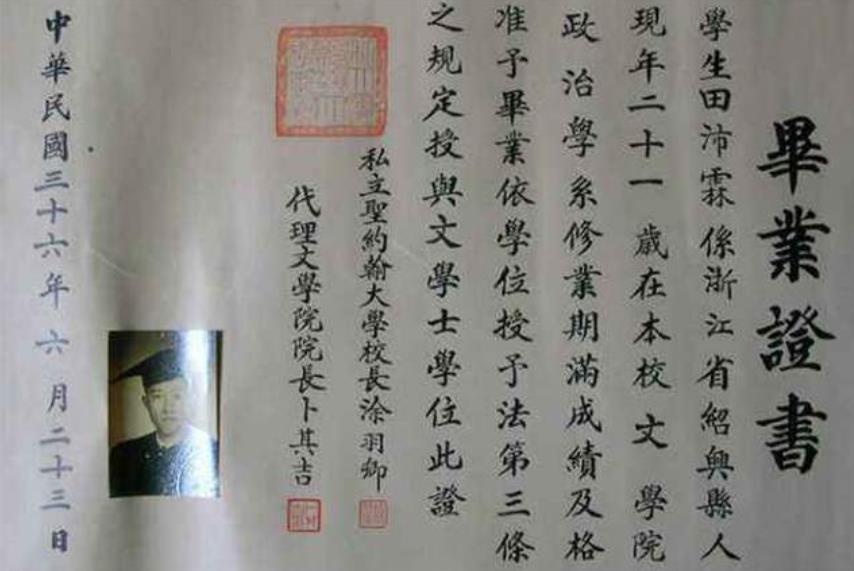 畢業證書
學生田沛霖係浙江省紹興縣人
現年二十一歲在本校文學院
政治學系修業期滿成績及格
准予畢業依學位授予法第三條
之規定授與文學士學位此證
私立聖約翰大學校長涂羽卿
代理文學院院長卜其吉
中華民國三十六年六月二十三日